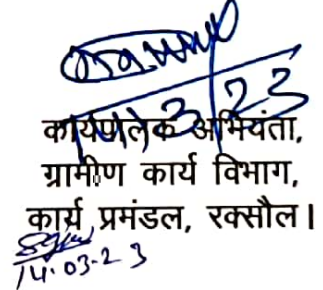 14/3/23
कार्यपालक अभियंता,
ग्रामीण कार्य विभाग,
कार्य प्रमंडल, रक्सौल।
14.03-23